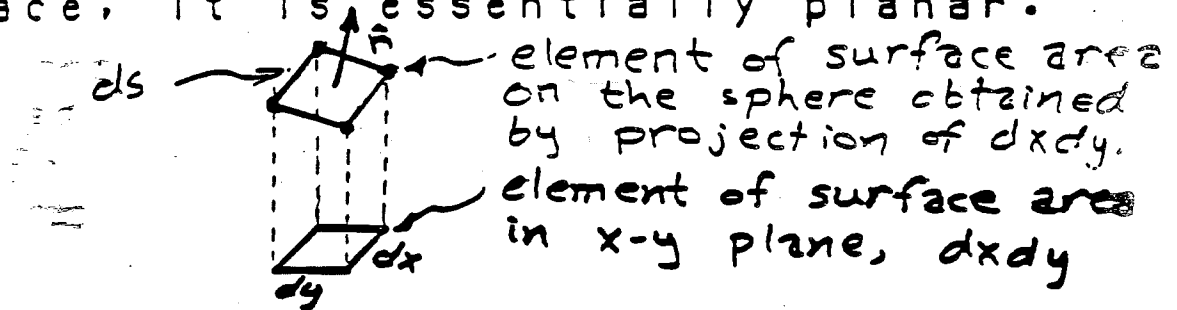 ace, it is essentially planar.
n̂
ds
element of surface area
on the sphere obtained
by projection of dxdy.
element of surface area
in x-y plane, dxdy
dx
dy